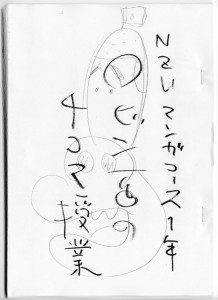 NZU マンガコース1年
ロビン西の
4コマ授業